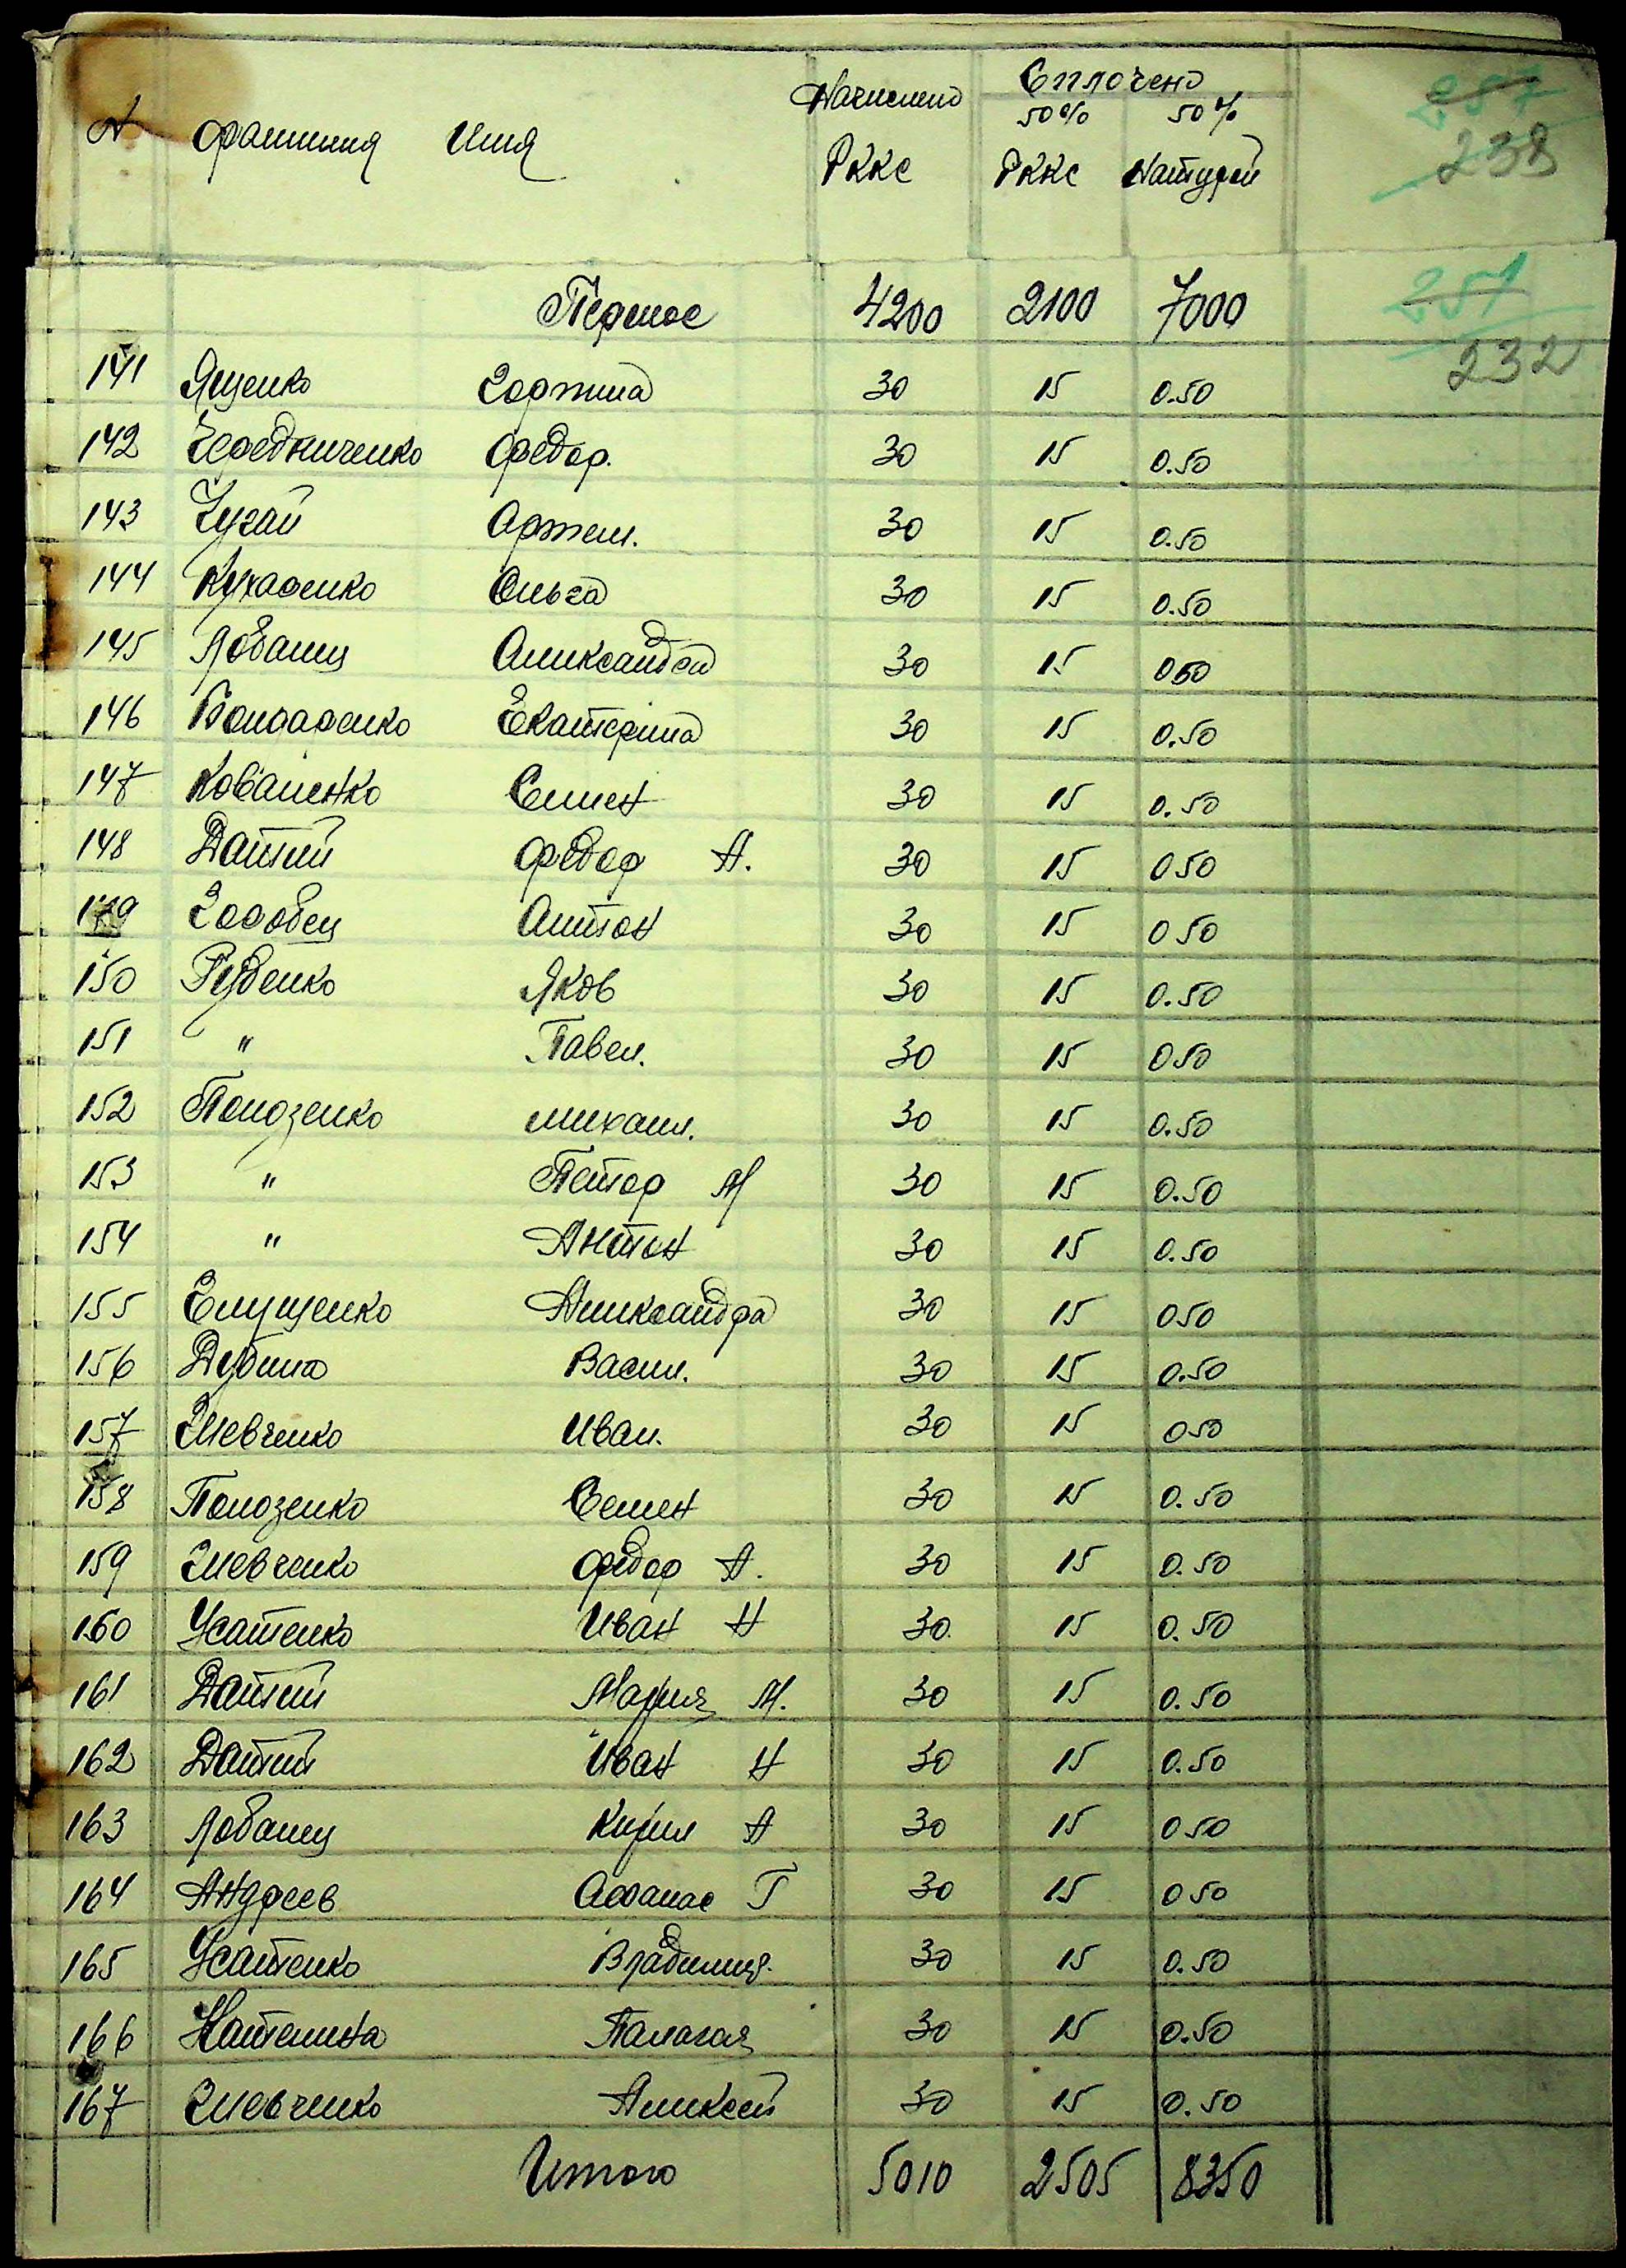 N Фамилия Имя Начислено Сплочено
50% 50%
РККС РККС Натурой
257
238
Перенос 4200 2100 7000
251
232
141 Ященко Горпина 30 15 0.50
142 Чередниченко Федор. 30 15 0.50
143 Чугай Артем. 30 15 0.50
144 Кухаренко Ольга 30 15 0.50
145 Лобанец Александра 30 15 050
146 Бондаренко Екатерина 30 15 0.50
147 Коваленко Семен 30 15 0.50
148 Датий Федор А. 30 15 050
149 Горобец Антон 30 15 050
150 Руденко Яков 30 15 0.50
151 " Павел. 30 15 050
152 Полозенко Михаил. 30 15 0.50
153 " Петор М 30 15 0.50
154 " Антон 30 15 0.50
155 Глущенко Александра 30 15 050
156 Дубина Васил. 30 15 0.50
157 Шевченко Иван. 30 15 050
158 Полозенко Семен 30 15 0.50
159 Шевченко Федор А. 30 15 0.50
160 Усатенко Иван Н 30 15 0.50
161 Датий Мария М. 30 15 0.50
162 Датий Иван Н 30 15 0.50
163 Лобанец Кирил А 30 15 050
164 Андреев Афанас Г 30 15 050
165 Усатенко Владимир. 30 15 0.50
166 Палагая 30 15 0.50
167 Шевченко Алексей 30 15 0.50
Итого 5010 2505 8350